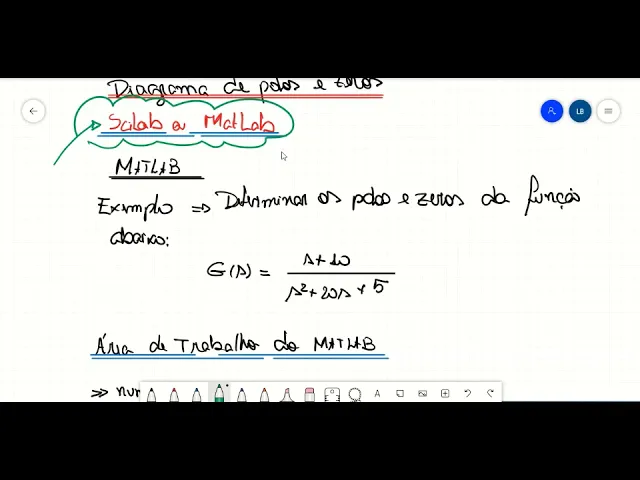 Diagrama de polos e zeros
Scilab ou MatLab
MATLAB
Exemplo ⇒ Determinar os polos e zeros da função
abaixo:
G(s) = s+10 / s²+20s+5
Área de Trabalho do MATLAB
>> num
LB
A